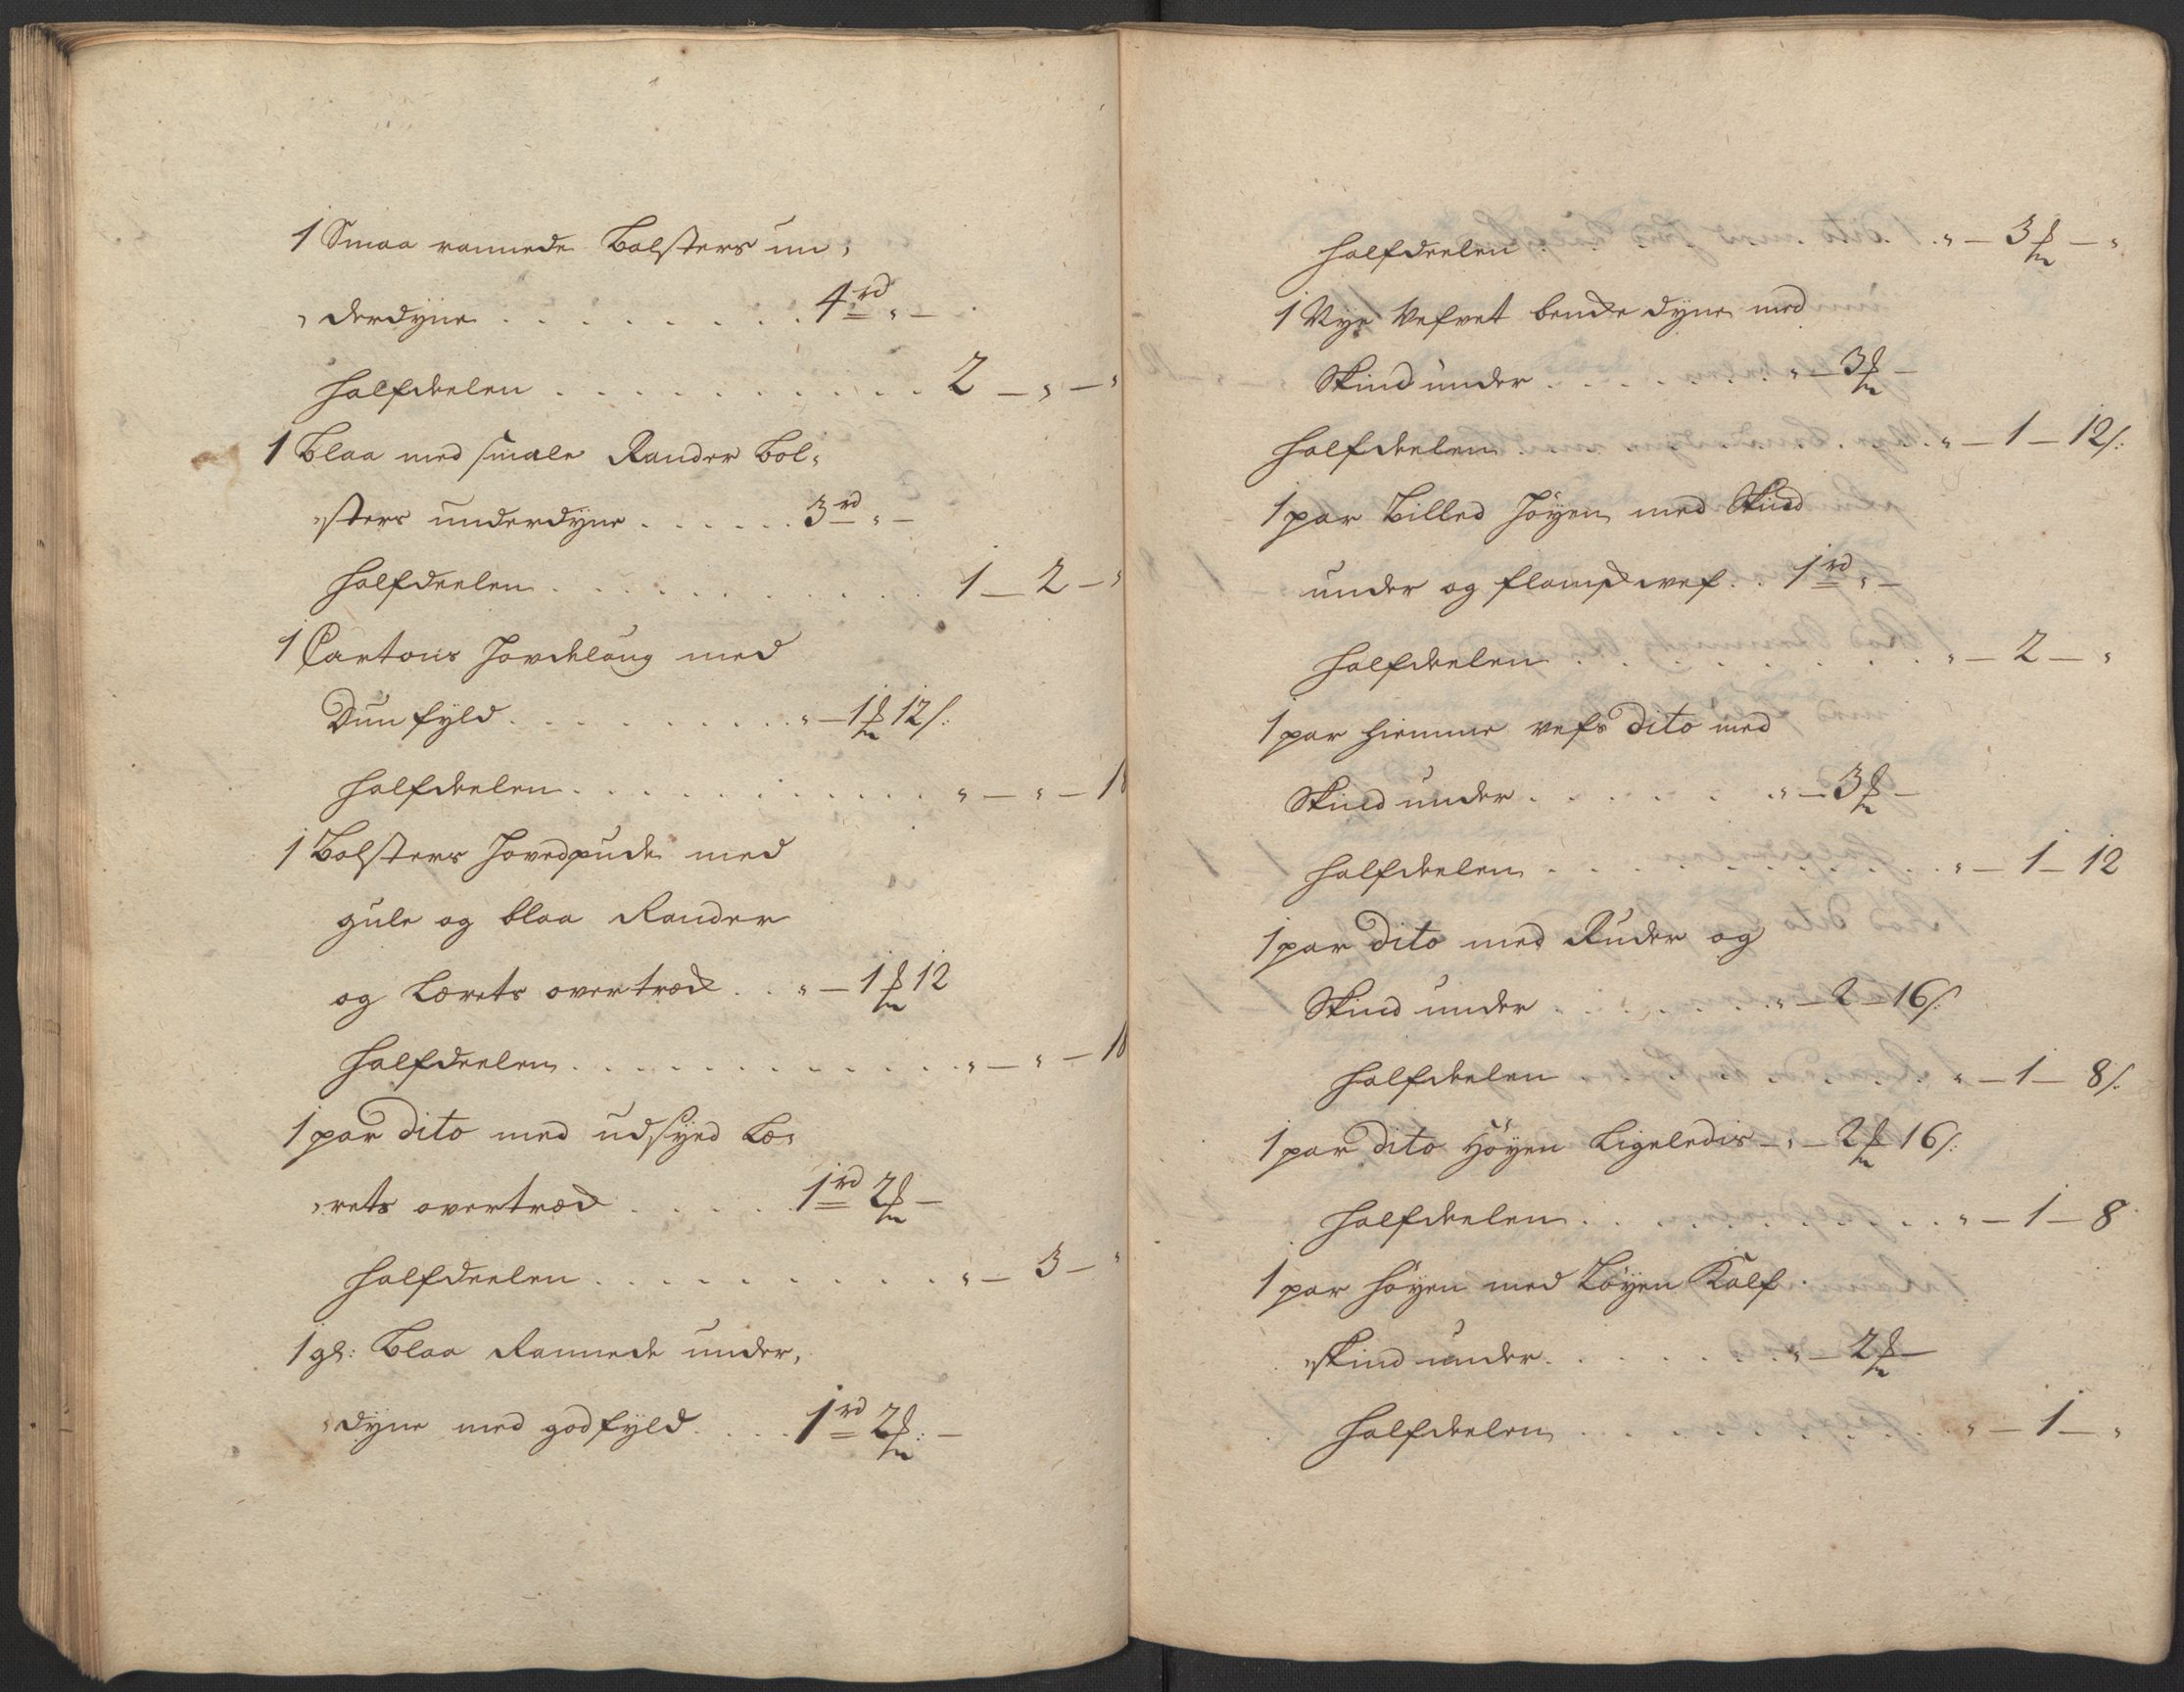 1 Smaa rannede Bolsters un,
, derdÿne . . . . . . . . . 4 rd „ —
halfdeelen . . . . . . . . . . . 2 — „ — „
1 Blaa med smale Rander Bol,
„sters underdÿne . . . . . . 3 rd „ —
halfdeelen . . . . . . . . . . . 1 — 2 — „
1 Cartons Hovdelaug med
Dun fÿld . . . . . . . . . „ — 1 ₰ 12 s:
halfdeelen . . . . . . . . . . . „ — „ — 18
1 Bolsters Hovedpude med
gule og blaa Rander
og Lærets overtræk . . „ — 1 ₰ 12
halfdeelen . . . . . . . . . . . . „ — „ — 18
1 par dito med udsÿed Læ,
„rets overtræk . . . . . 1 rd 2 ₰ —
halfdeelen . . . . . . . . . . . „ — 3 — „
1 gl: Blaa Rannede under,
„dÿne med god fÿld . . . . 1 rd 2 ₰: —
halfdeelen . . . . . . . . . „ — 3 ₰ — „
1 Rye Vefvet benke dÿne med
Skind under . . . . . . . „ — 3 ₰ —
halfdeelen . . . . . . . . . „ — 1 — 12 s:
1 par Billed Höÿen med Skind
under og flamsk vef . . 1 rd „ —
halfdeelen . . . . . . . . . . . „ — 2 — „
1 par hiemme vefs dito med
Skind under . . . . . . „ — 3 ₰ —
halfdeelen . . . . . . . . . . . „ — 1 — 12
1 par dito med Ruder og
Skind under . . . . . . „ — 2 — 16 s:
halfdeelen . . . . . . . . . . „ — 1 — 8 s:
1 par dito Höÿen Ligeledis — „ — 2 ₰ 16 s:
halfdeelen . . . . . . . . . . . „ — 1 — 8
1 par höÿen med Löÿen Kalf
„skind under . . . . . . „ — 2 ₰ —
halfdeelen . . . . . . . . . . „ — 1 — „